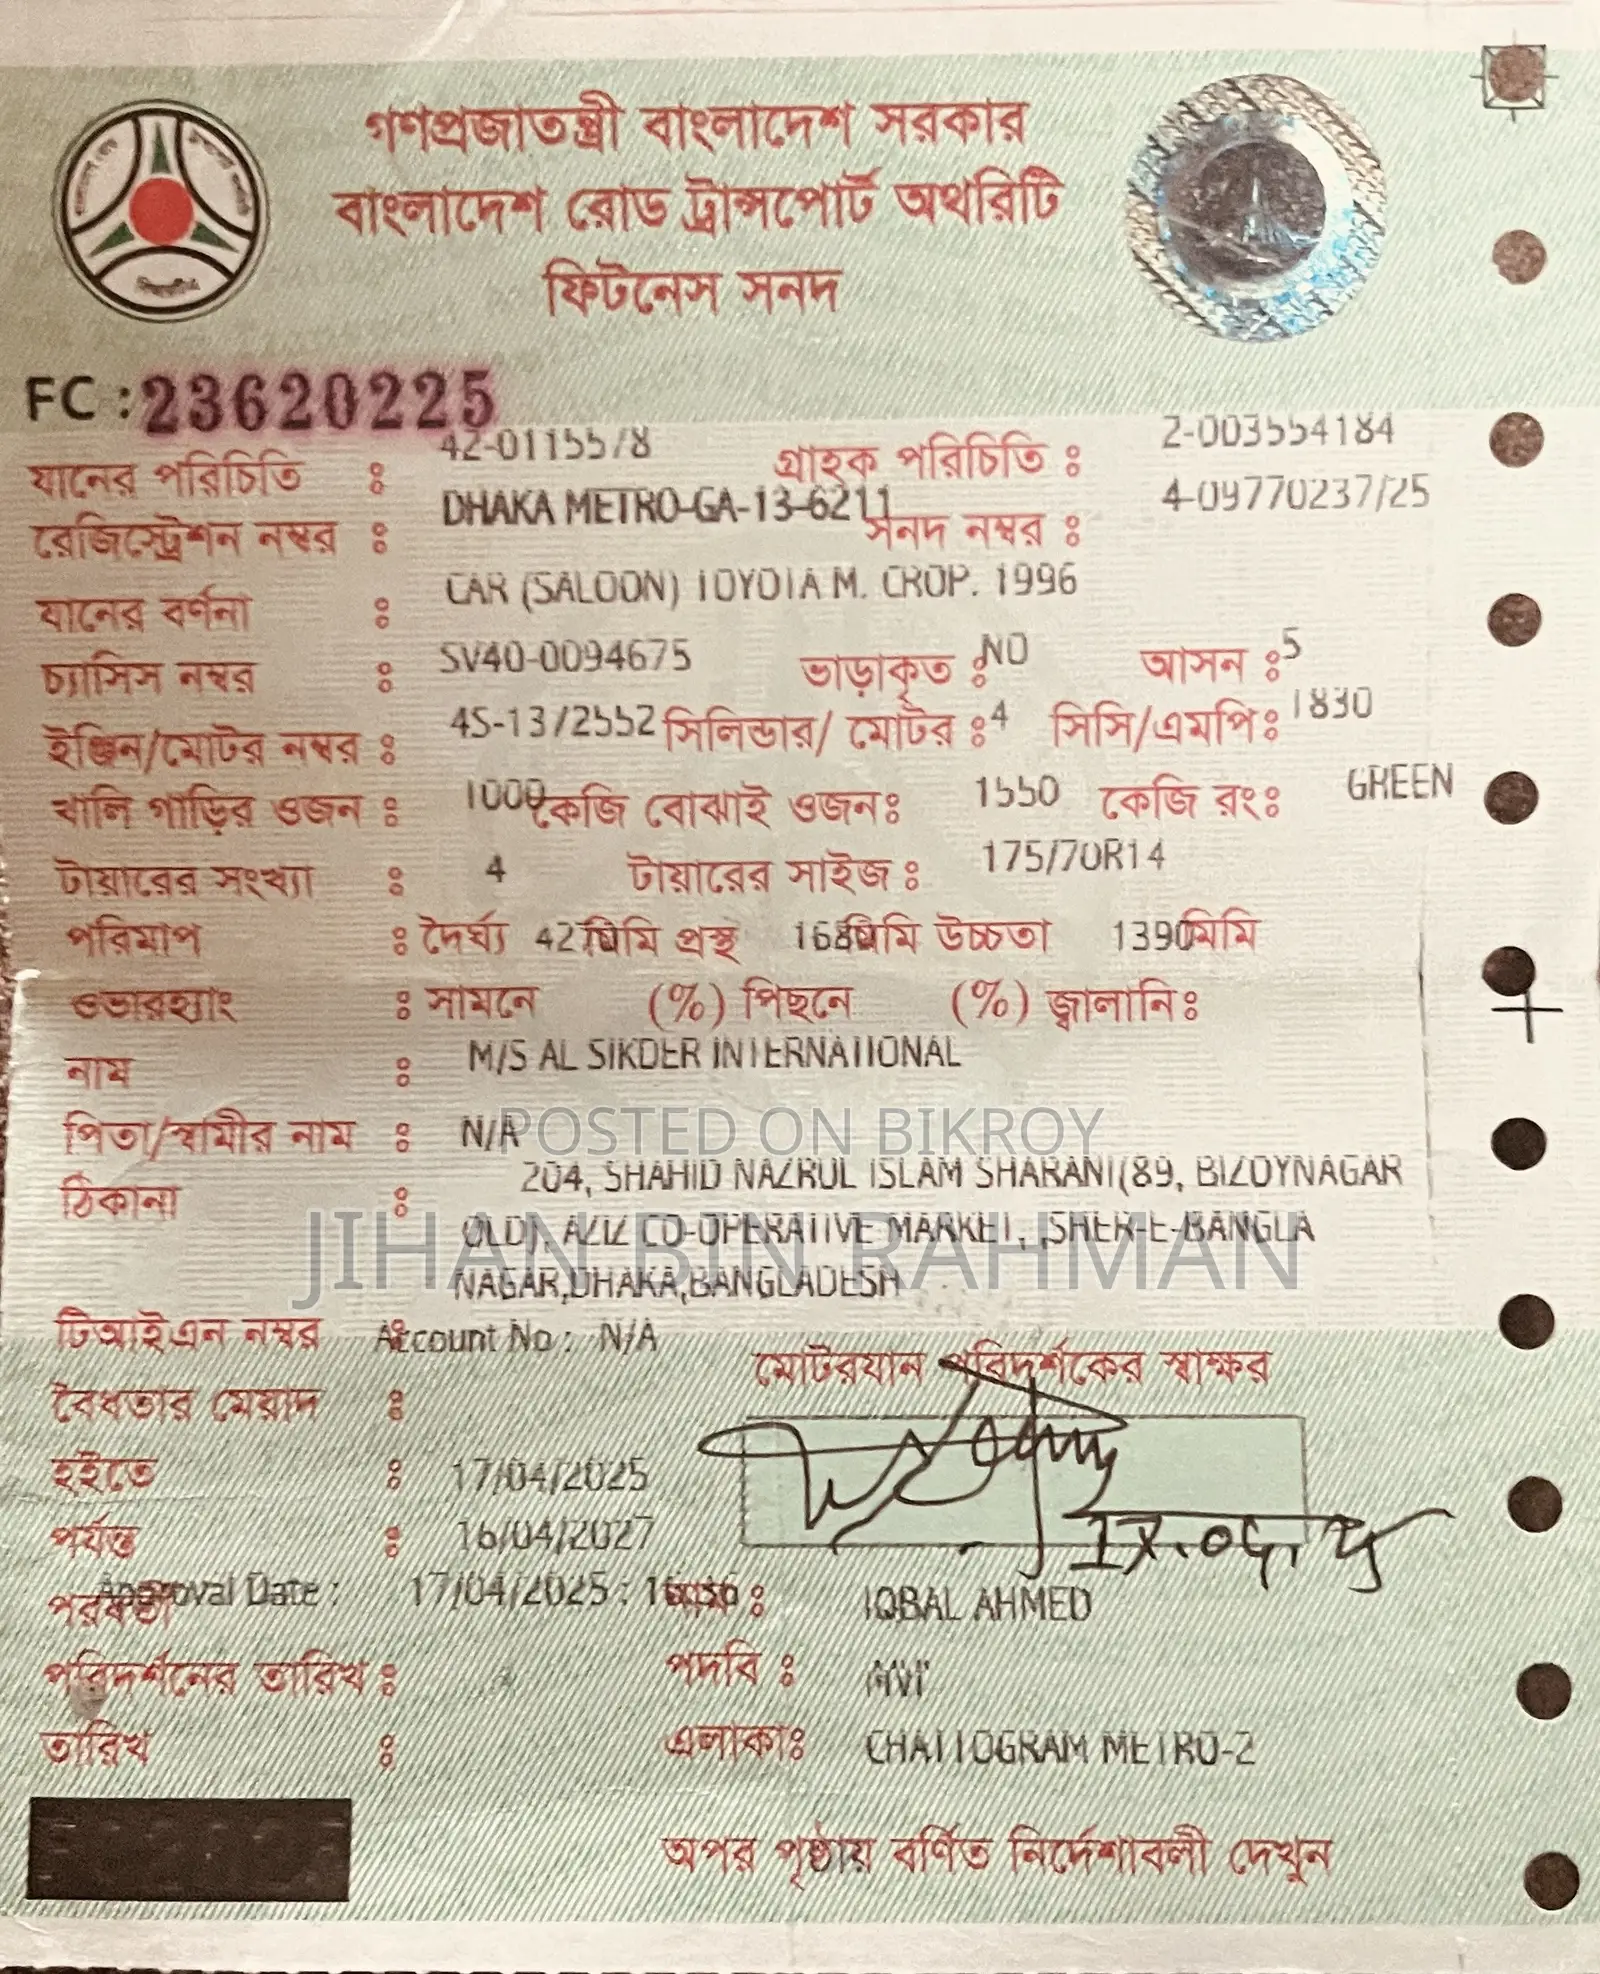 গণপ্রজাতন্ত্রী বাংলাদেশ সরকার
বাংলাদেশ রোড ট্রান্সপোর্ট অথরিটি
ফিটনেস সনদ
FC : 23620225
যানের পরিচিতি : 42-0115578 গ্রাহক পরিচিতি : 2-003554184
রেজিস্ট্রেশন নম্বর : DHAKA METRO-GA-13-6211 সনদ নম্বর : 4-09770237/25
যানের বর্ণনা : CAR (SALOON) TOYOTA M. CROP. 1996
চ্যাসিস নম্বর : SV40-0094675 ভাড়াকৃত : NO আসন : 5
ইঞ্জিন/মোটর নম্বর : 4S-1372552 সিলিন্ডার/ মোটর : 4 সিসি/এমপি : 1830
খালি গাড়ির ওজন : 1000 কেজি বোঝাই ওজন : 1550 কেজি রং : GREEN
টায়ারের সংখ্যা : 4 টায়ারের সাইজ : 175/70R14
পরিমাপ : দৈর্ঘ্য 4270 মিমি প্রস্থ 1680 মিমি উচ্চতা 1390 মিমি
ওভারহ্যাং : সামনে (%) পিছনে (%) জ্বালানি :
নাম : M/S AL SIKDER INTERNATIONAL
পিতা/স্বামীর নাম : N/A
POSTED ON BIKROY
ঠিকানা : 204, SHAHID NAZRUL ISLAM SHARANI(89, BIZOYNAGAR
OLD), AZIZ CO-OPERATIVE MARKET, ,SHER-E-BANGLA
JIHAN BIN RAHMAN
NAGAR,DHAKA,BANGLADESH
টিআইএন নম্বর : Account No : N/A
মোটরযান পরিদর্শকের স্বাক্ষর
বৈধতার মেয়াদ :
হইতে : 17/04/2025
পর্যন্ত : 16/04/2027
17.04.25
Approval Date : 17/04/2025 :
পরবর্তী
নাম : IQBAL AHMED
পরিদর্শনের তারিখ : পদবি : MVI
তারিখ : এলাকা : CHATTOGRAM METRO-2
অপর পৃষ্ঠায় বর্ণিত নির্দেশাবলী দেখুন